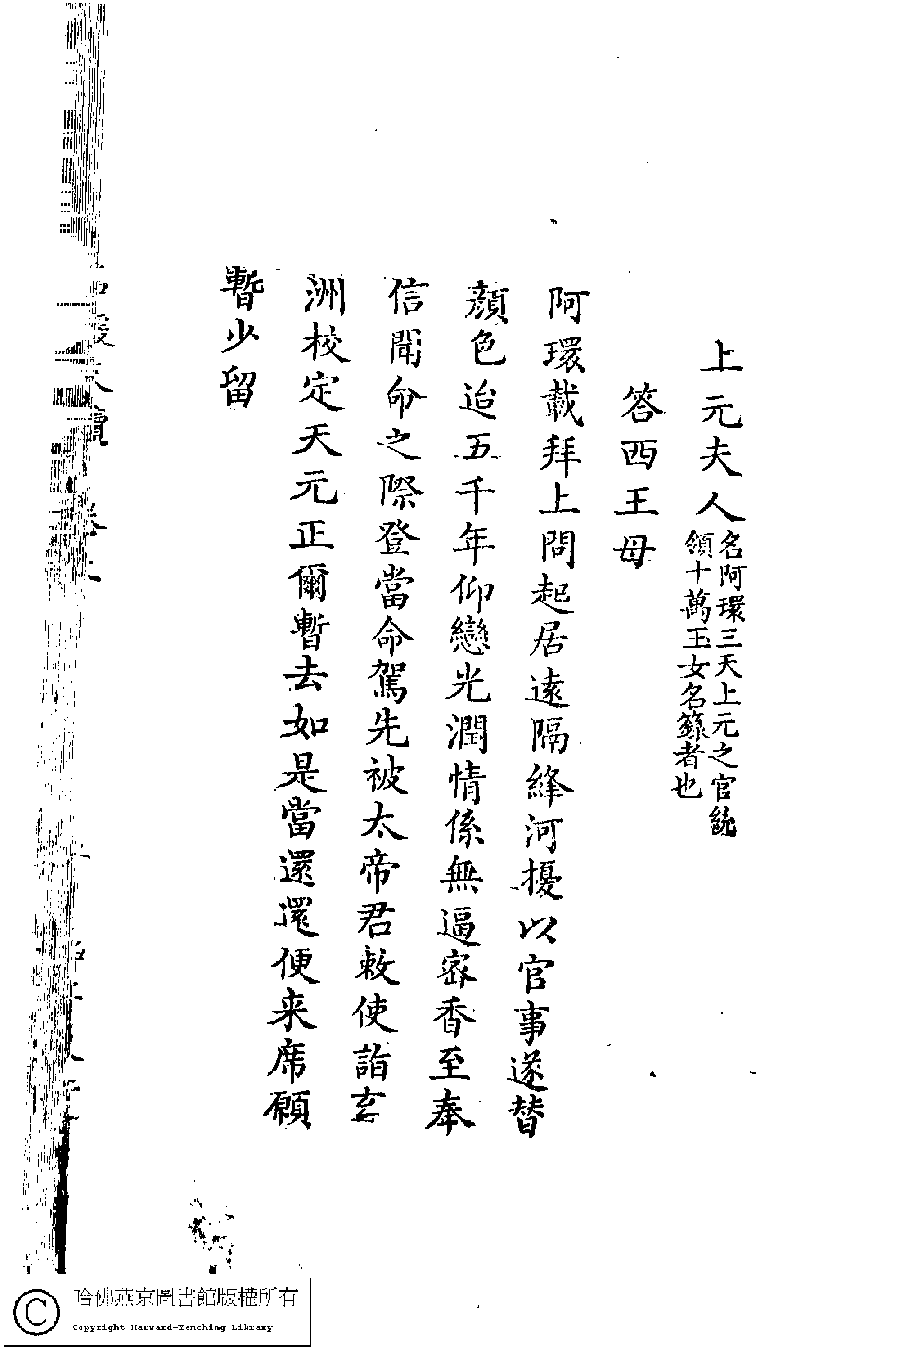 上元夫人名阿環三天上元之官統
領十萬玉女名籙者也
答西王母
阿環載拜上問起居遠隔絳河擾以官事遂替
顏色迨五千年仰戀光潤情係無逼密香至奉
信聞命之際登當命駕先被太帝君敕使詣玄
洲校定天元正爾暫去如是當還還便来席願
暫少留
哈佛燕京圖書館版權所有
Copyright Harvard-Yenching Library